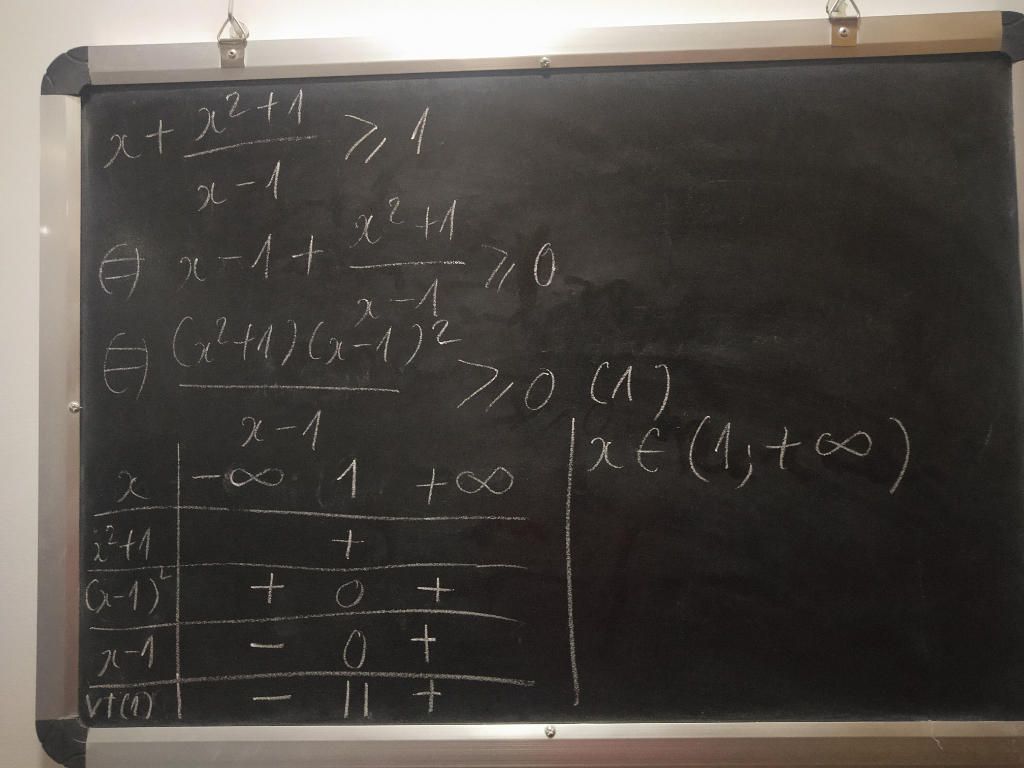 x + \frac{x^2+1}{x-1} ⩾ 1
⇔ x-1+ \frac{x^2+1}{x-1} ⩾ 0
⇔ \frac{(x^2+1)(x-1)^2}{x-1} ⩾ 0 (1)
x | -∞ 1 +∞
x^2+1 | +
(x-1)^2 | + 0 +
x-1 | - 0 +
VT(1) | - || +
x ∈ (1; +∞)